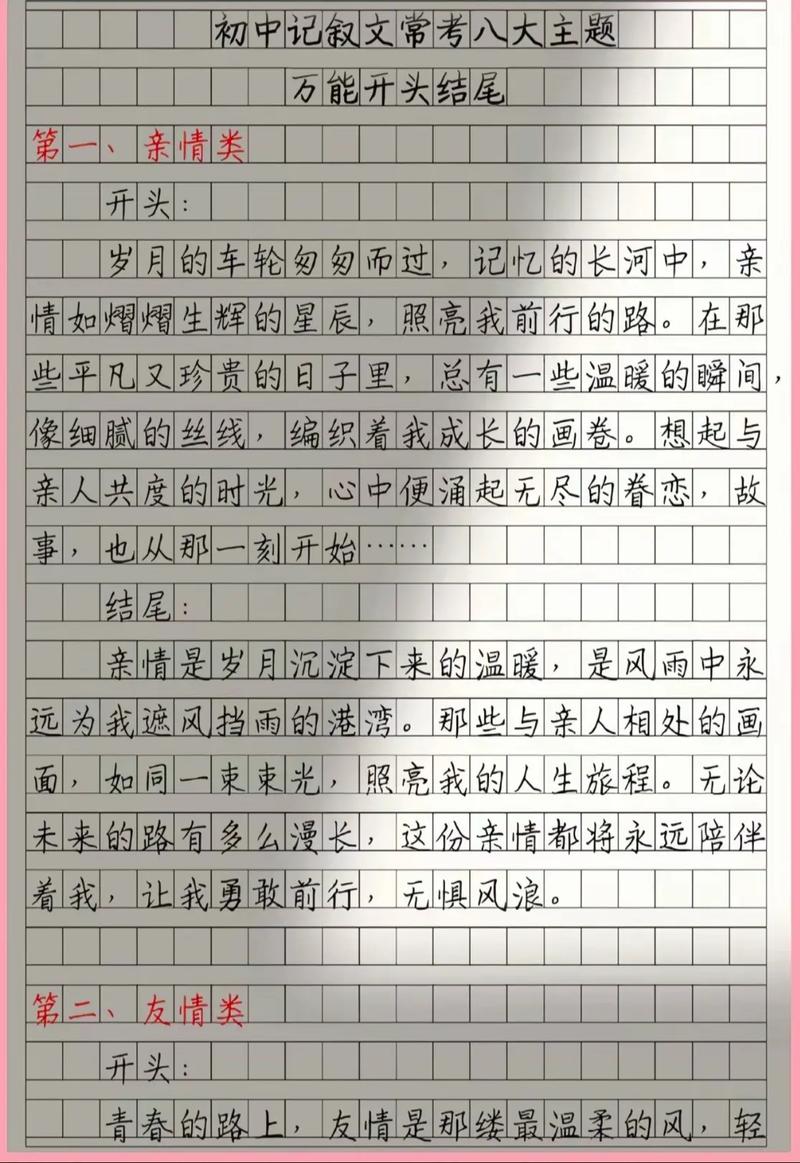 初中记叙文常考八大主题
万能开头结尾
第一、亲情类
开头：
岁月的车轮匆匆而过，记忆的长河中，亲
情如熠熠生辉的星辰，照亮我前行的路。在那
些平凡又珍贵的日子里，总有一些温暖的瞬间，
像细腻的丝线，编织着我成长的画卷。想起与
亲人共度的时光，心中便涌起无尽的眷恋，故
事，也从那一刻开始……
结尾：
亲情是岁月沉淀下来的温暖，是风雨中永
远为我遮风挡雨的港湾。那些与亲人相处的画
面，如同一束束光，照亮我的人生旅程。无论
未来的路有多么漫长，这份亲情都将永远陪伴
着我，让我勇敢前行，无惧风浪。
第二、友情类
开头：
青春的路上，友情是那缕最温柔的风，轻